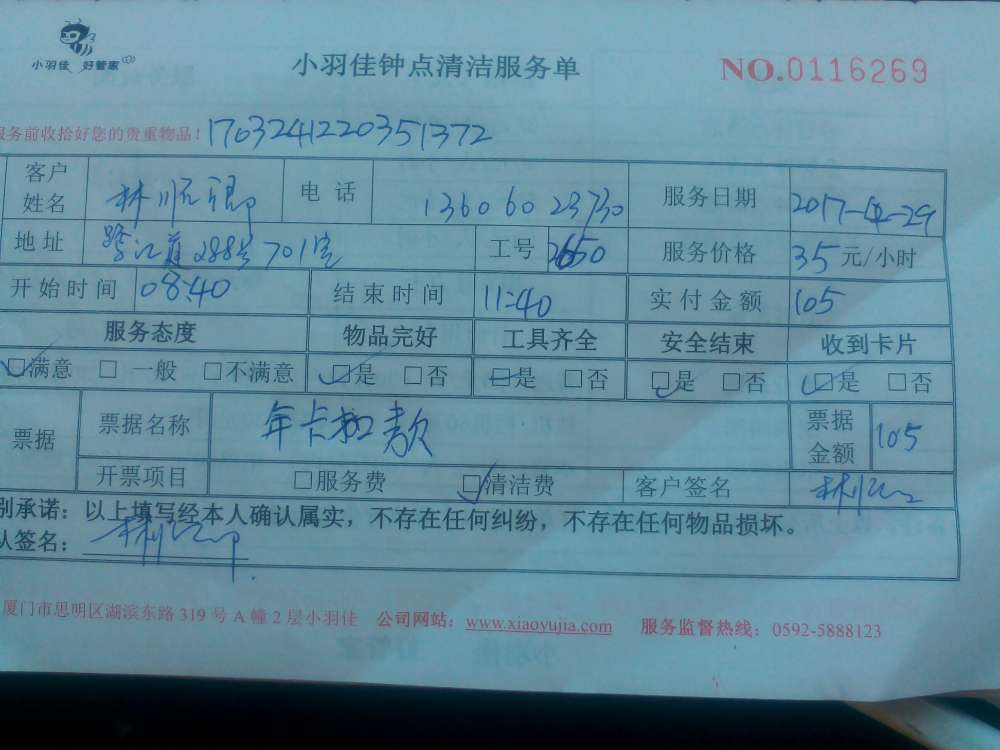 小羽佳 好管家
小羽佳钟点清洁服务单
NO.0116269
服务前收拾好您的贵重物品！1703241220351372
客户姓名 林顺银 电话 13606023730 服务日期 2017-4-29
地址 鹭江道288号701室 工号 2650 服务价格 35元/小时
开始时间 08:40 结束时间 11:40 实付金额 105
服务态度 物品完好 工具齐全 安全结束 收到卡片
☑满意 □一般 □不满意 ☑是 □否 ☑是 □否 ☑是 □否 ☑是 □否
票据 票据名称 年卡扣款 票据金额 105
开票项目 □服务费 ☑清洁费 客户签名
别承诺：以上填写经本人确认属实，不存在任何纠纷，不存在任何物品损坏。
认签名：
厦门市思明区湖滨东路319号A幢2层小羽佳 公司网站：www.xiaoyujia.com 服务监督热线：0592-5888123